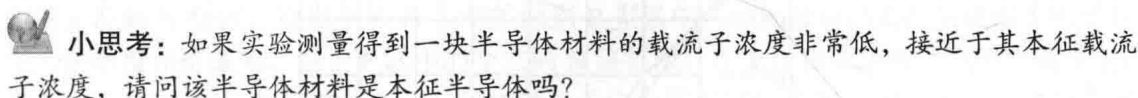 小思考：如果实验测量得到一块半导体材料的载流子浓度非常低，接近于其本征载流
子浓度，请问该半导体材料是本征半导体吗？